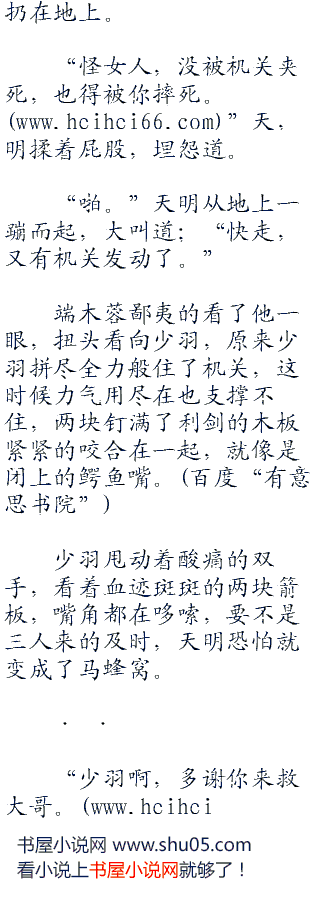 扔在地上。
“怪女人，没被机关夹
死，也得被你摔死。
(www.hcihci66.com)”天，
明揉着屁股，埋怨道。
“啪。”天明从地上一
蹦而起，大叫道；“快走，
又有机关发动了。”
端木蓉鄙夷的看了他一
眼，扭头看向少羽，原来少
羽拼尽全力般住了机关，这
时候力气用尽在也支撑不
住，两块钉满了利剑的木板
紧紧的咬合在一起，就像是
闭上的鳄鱼嘴。(百度“有意
思书院”)
少羽甩动着酸痛的双
手，看着血迹斑斑的两块箭
板，嘴角都在哆嗦，要不是
三人来的及时，天明恐怕就
变成了马蜂窝。
· ·
“少羽啊，多谢你来救
大哥。(www.hcihci
书屋小说网 www.shu05.com
看小说上书屋小说网就够了！